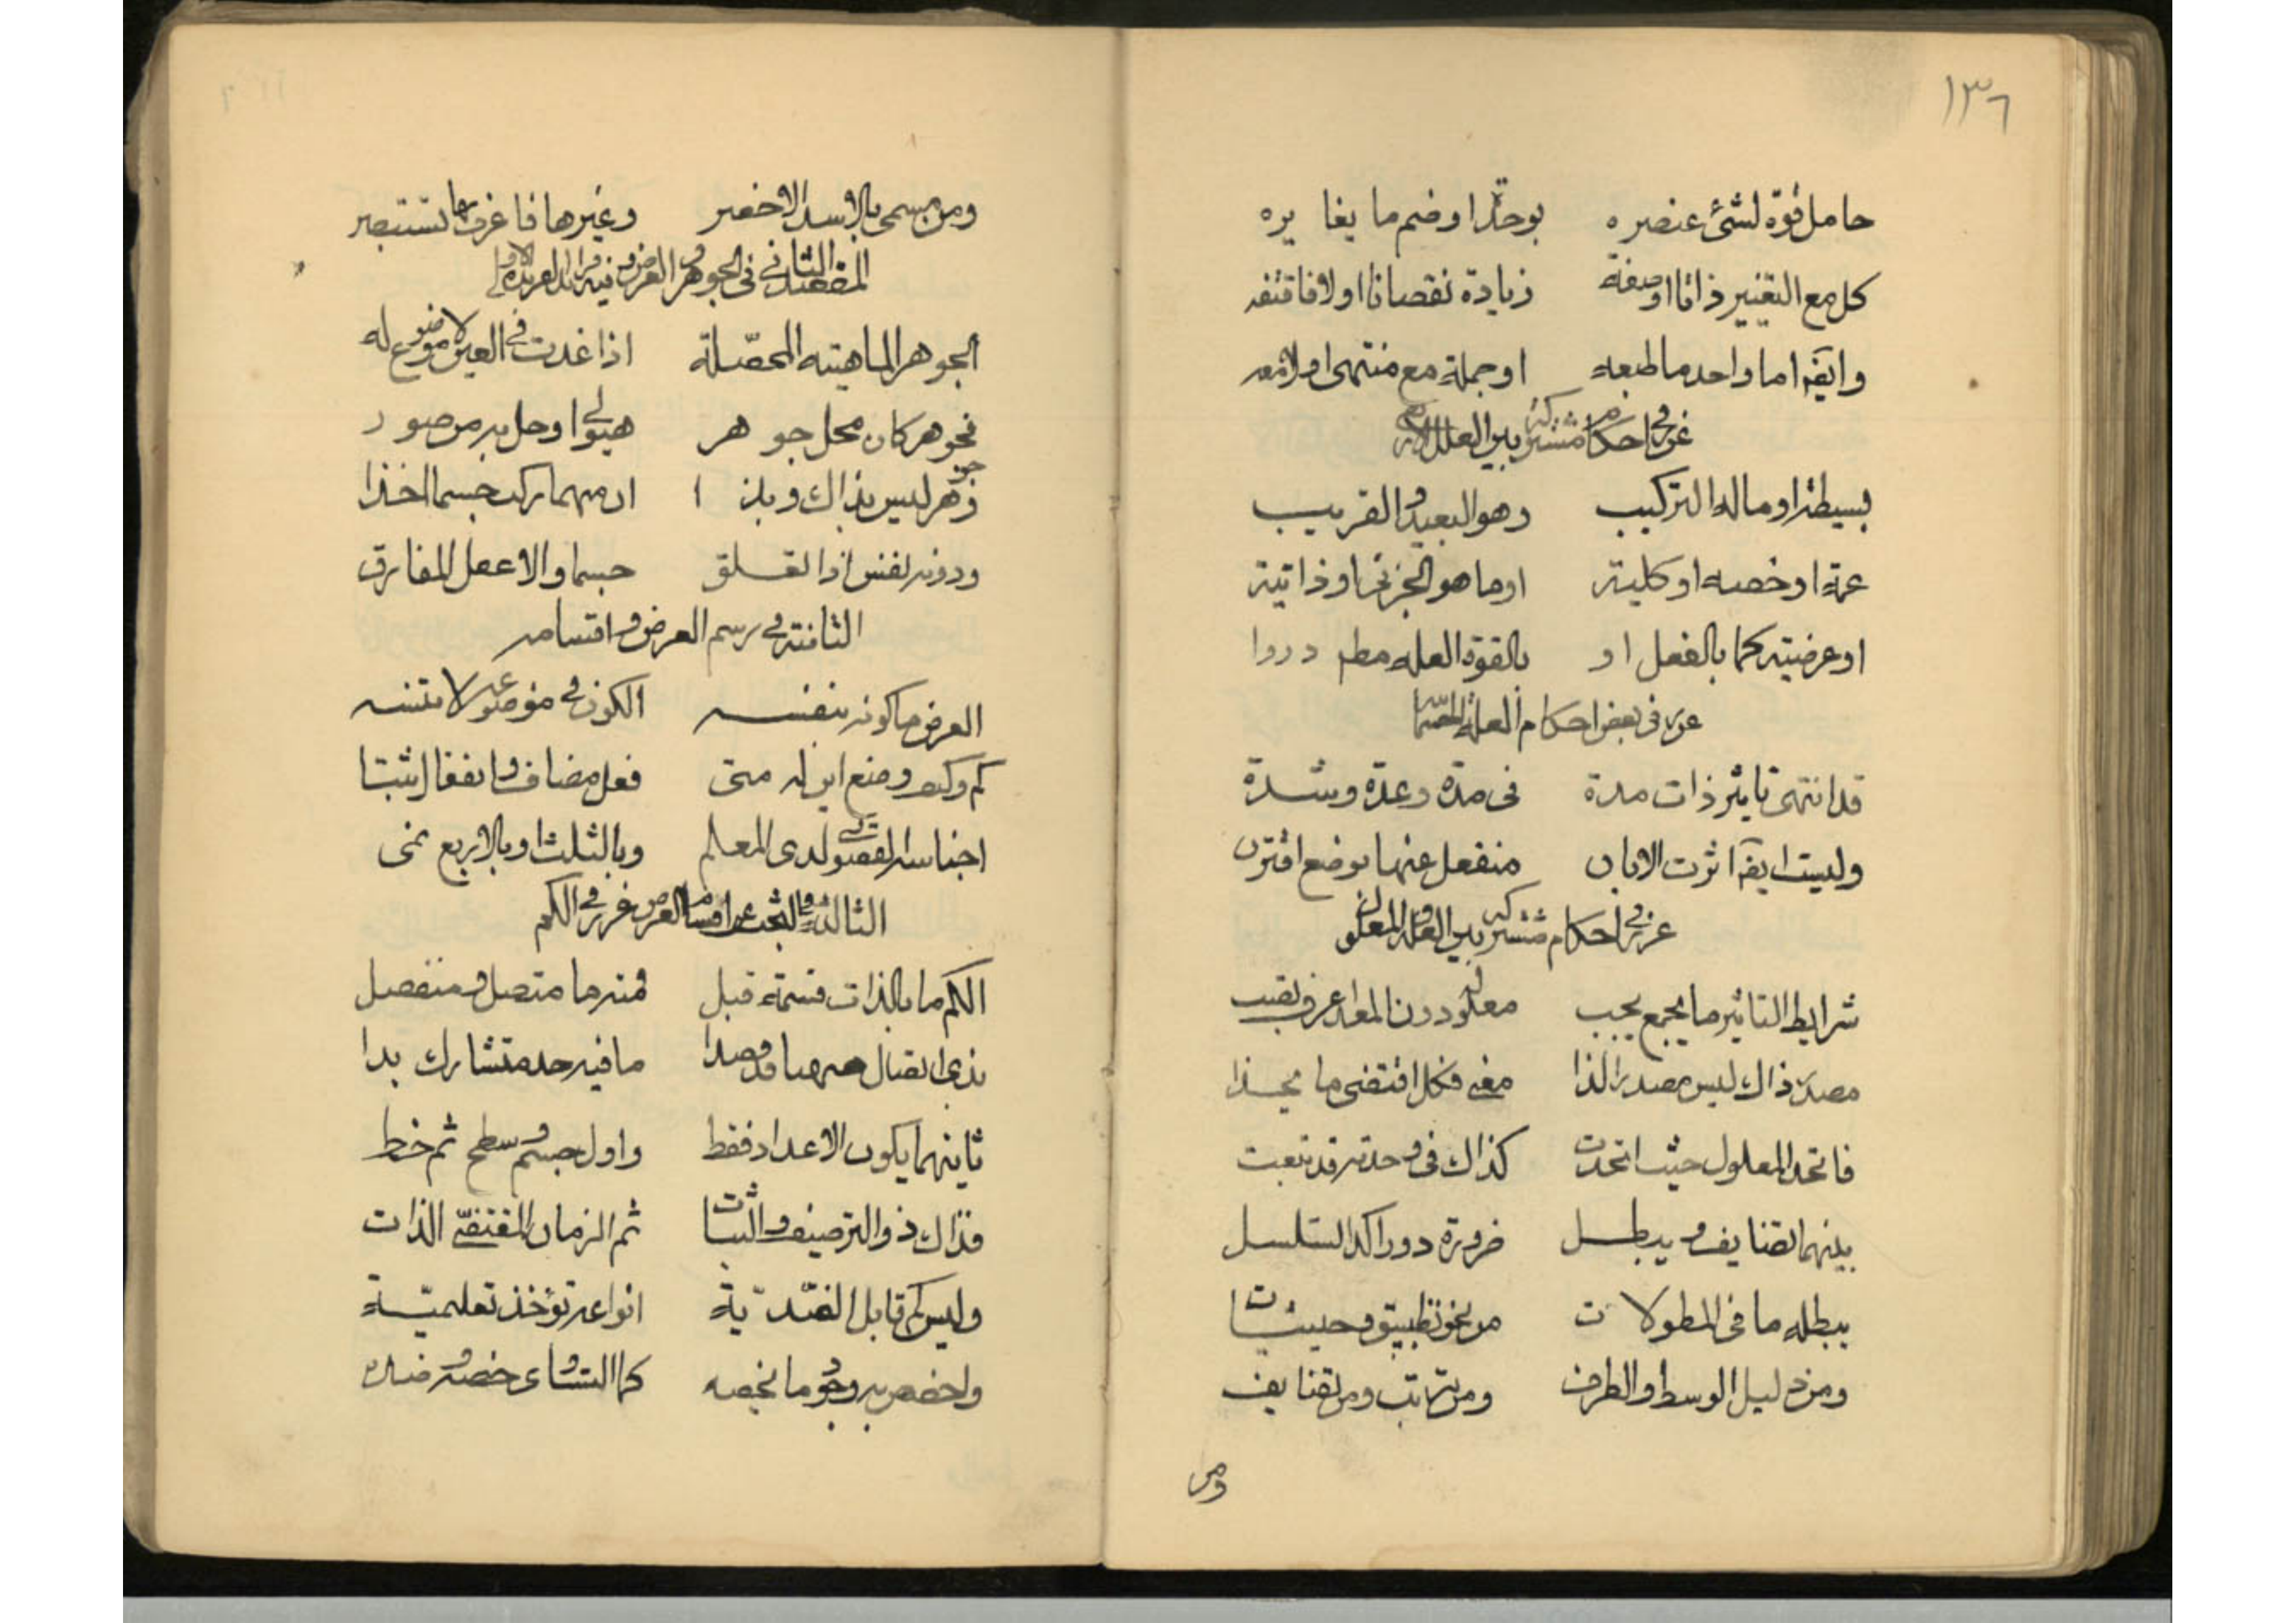 ١٣٦
حامل قوة لشئ عنصره بوحدة اوضم ما يغايره
كل مع التغيير ذاتا او صفة زيادة نقصانا اولا فاقتفه
وايضا اما واحد ما طبعه او جملة مع منتهى اولا معه
غرر في احكام مشتركة بين العلل الاربع
بسيطة او ماله التركيب وهو البعيد والقريب
عمة او خصه او كلية او ما هو الجزئى او ذاتية
او عرضية كما بالفعل او بالقوة العلة مطـ دروا
غرر فى بعض احكام العلة الجسمانية
قد انتهى تاثير ذات مدة فى مدة وعدة وشدة
وليست ايضا اثرت الا بان منفعل عنها بوضع اقترن
غرر في احكام مشتركة بين العلة والمعلول
شرايط التاثير ما يجمع يجب معلوله دون المعد عرف نصب
مصدر ذاك ليس مصدر الذا معنى فكل اقتضى ما بحذا
فاتحد المعلول حيث اتحدت كذاك فى وحدته قد تبعت
بينهما تضايف ويبطل ضرورة دورا كذا التسلسل
يبطله ما فى المطولات من نحو تطبيق وحيثيات
ومن دليل الوسط والطرف ومن ترتب ومن تضايف
ومن
ومن مسمى بالاسد الاخصر وغيرها فاعرف بها تستبصر
المقصد الثاني فى الجوهر والعرض وفيه فرائد الفريدة الاولى
الجوهر الماهية المحصلة اذا غدت في العين لا موضوع له
فجوهر كان محل جوهر هيولى او حل به من صور
جوهر ليس بذاك وبذا ان منهما ركب جسما اخذا
ودونه نفس اذا تعلق جسما والا عقل المفارق
الثانية في رسم العرض واقسامه
العرض ما كونه بنفسه الكون في موضوعه لا تنسه
كم وكيف وضع اين له متى فعل مضاف وانفعال ثبتا
اجناسه القصوى لدى المعلم وبالثلث او بالاربع نمى
الثالثة في البحث عن اقسام العرض غرر في الكم
الكم ما بالذات قسمة قبل فمنه ما متصل ومنفصل
بذى اتصال ههنا قد قصدا ما فيه حد متشارك بدا
ثانيهما يكون الاعداد فقط واول جسم وسطح ثم خط
فذاك ذو الترصيف والثبات ثم الزمان المقتضى الذات
وليس كم قابل الضدية انواعه تؤخذ تعليمية
واخصص به وجود ما يخصه كما التساوى خصه وضده